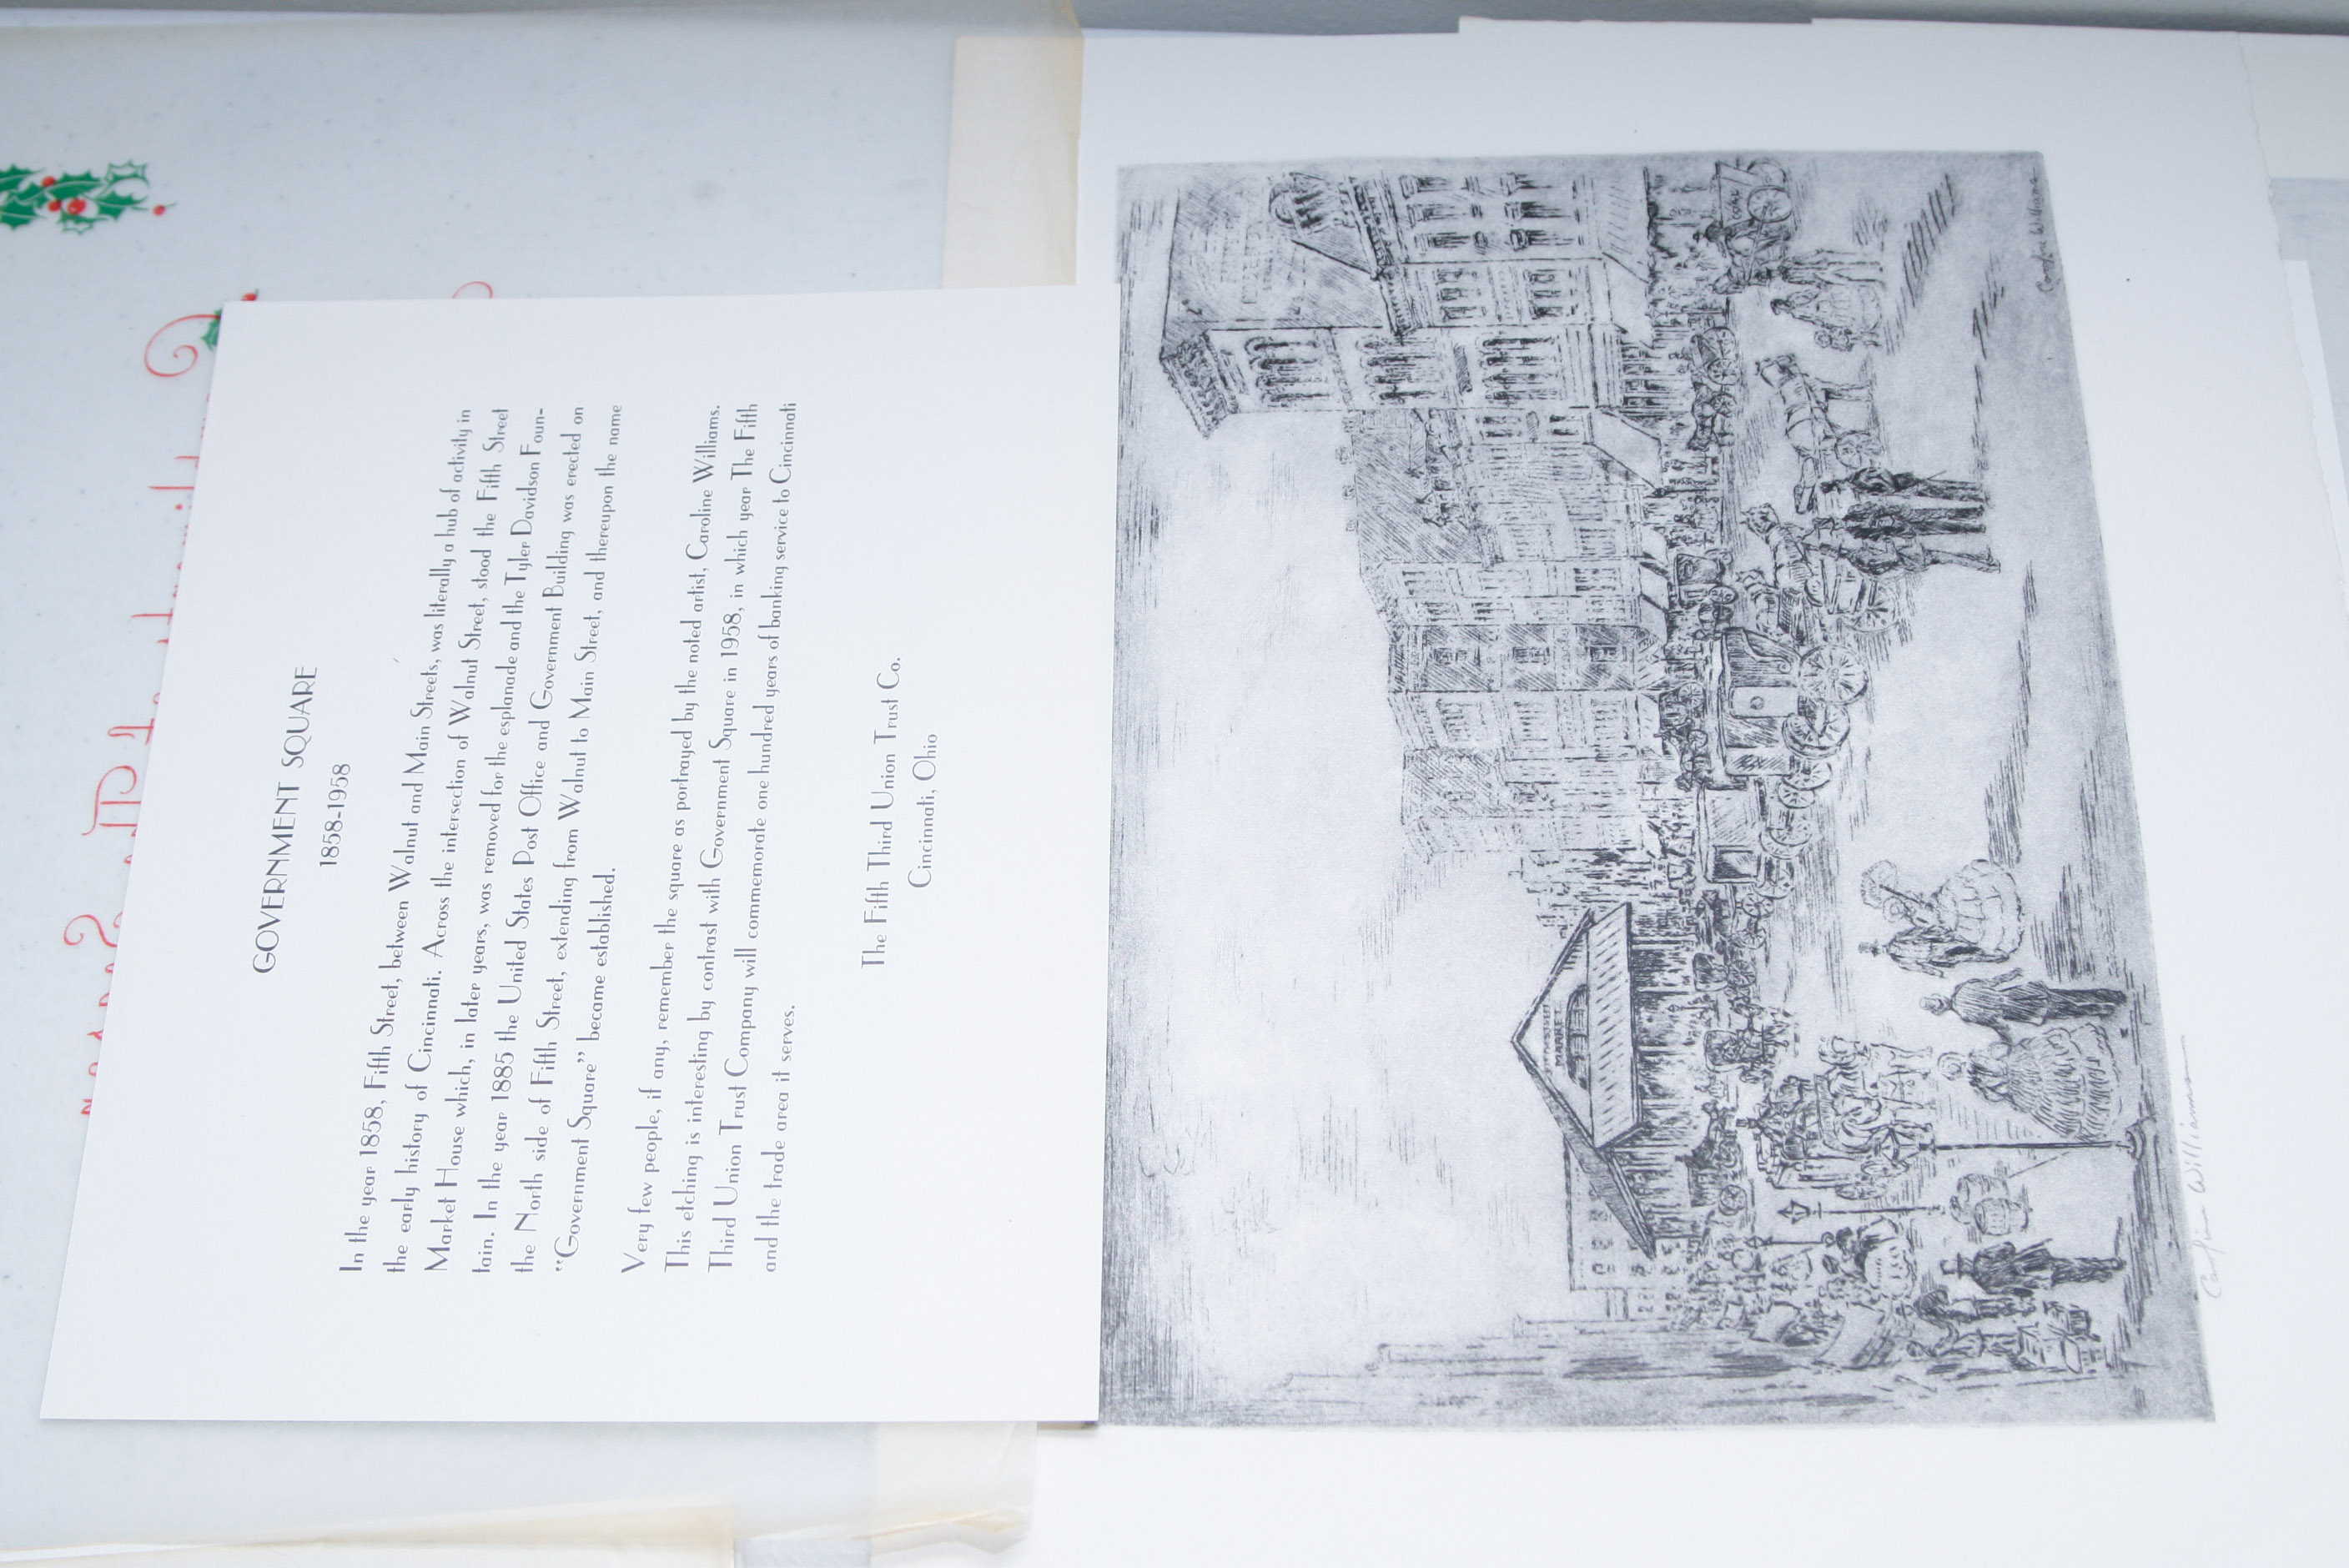 GOVERNMENT SQUARE
1858-1958
In the year 1858, Fifth Street, between Walnut and Main Streets, was literally a hub of activity in
the early history of Cincinnati. Across the intersection of Walnut Street, stood the Fifth Street
Market House which, in later years, was removed for the esplanade and the Tyler Davidson Foun-
tain. In the year 1885 the United States Post Office and Government Building was erected on
the North side of Fifth Street, extending from Walnut to Main Street, and thereupon the name
“Government Square” became established.
Very few people, if any, remember the square as portrayed by the noted artist, Caroline Williams.
This etching is interesting by contrast with Government Square in 1958, in which year The Fifth
Third Union Trust Company will commemorate one hundred years of banking service to Cincinnati
and the trade area it serves.
The Fifth Third Union Trust Co.
Cincinnati, Ohio
MARKET
Caroline Williams
Caroline Williams